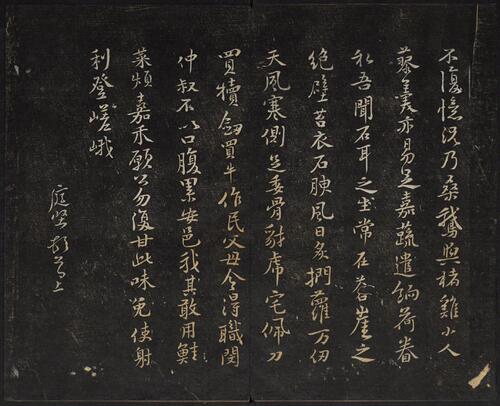 不復憶況乃桑鵝與楮雞小人
藜羹亦易足嘉蔬遣餉荷眷
私吾聞石耳之生常在蒼崖之
絕壁苔衣石腴風日炙捫蘿萬仞
天風寒側足委骨豺虎宅佩刀
買犢劍買牛作民父母今得職閔
仲叔不以口腹累安邑我其敢用鮭
菜煩嘉禾願公勿復甘此味免使射
利登嵯峨
庭堅頓首上